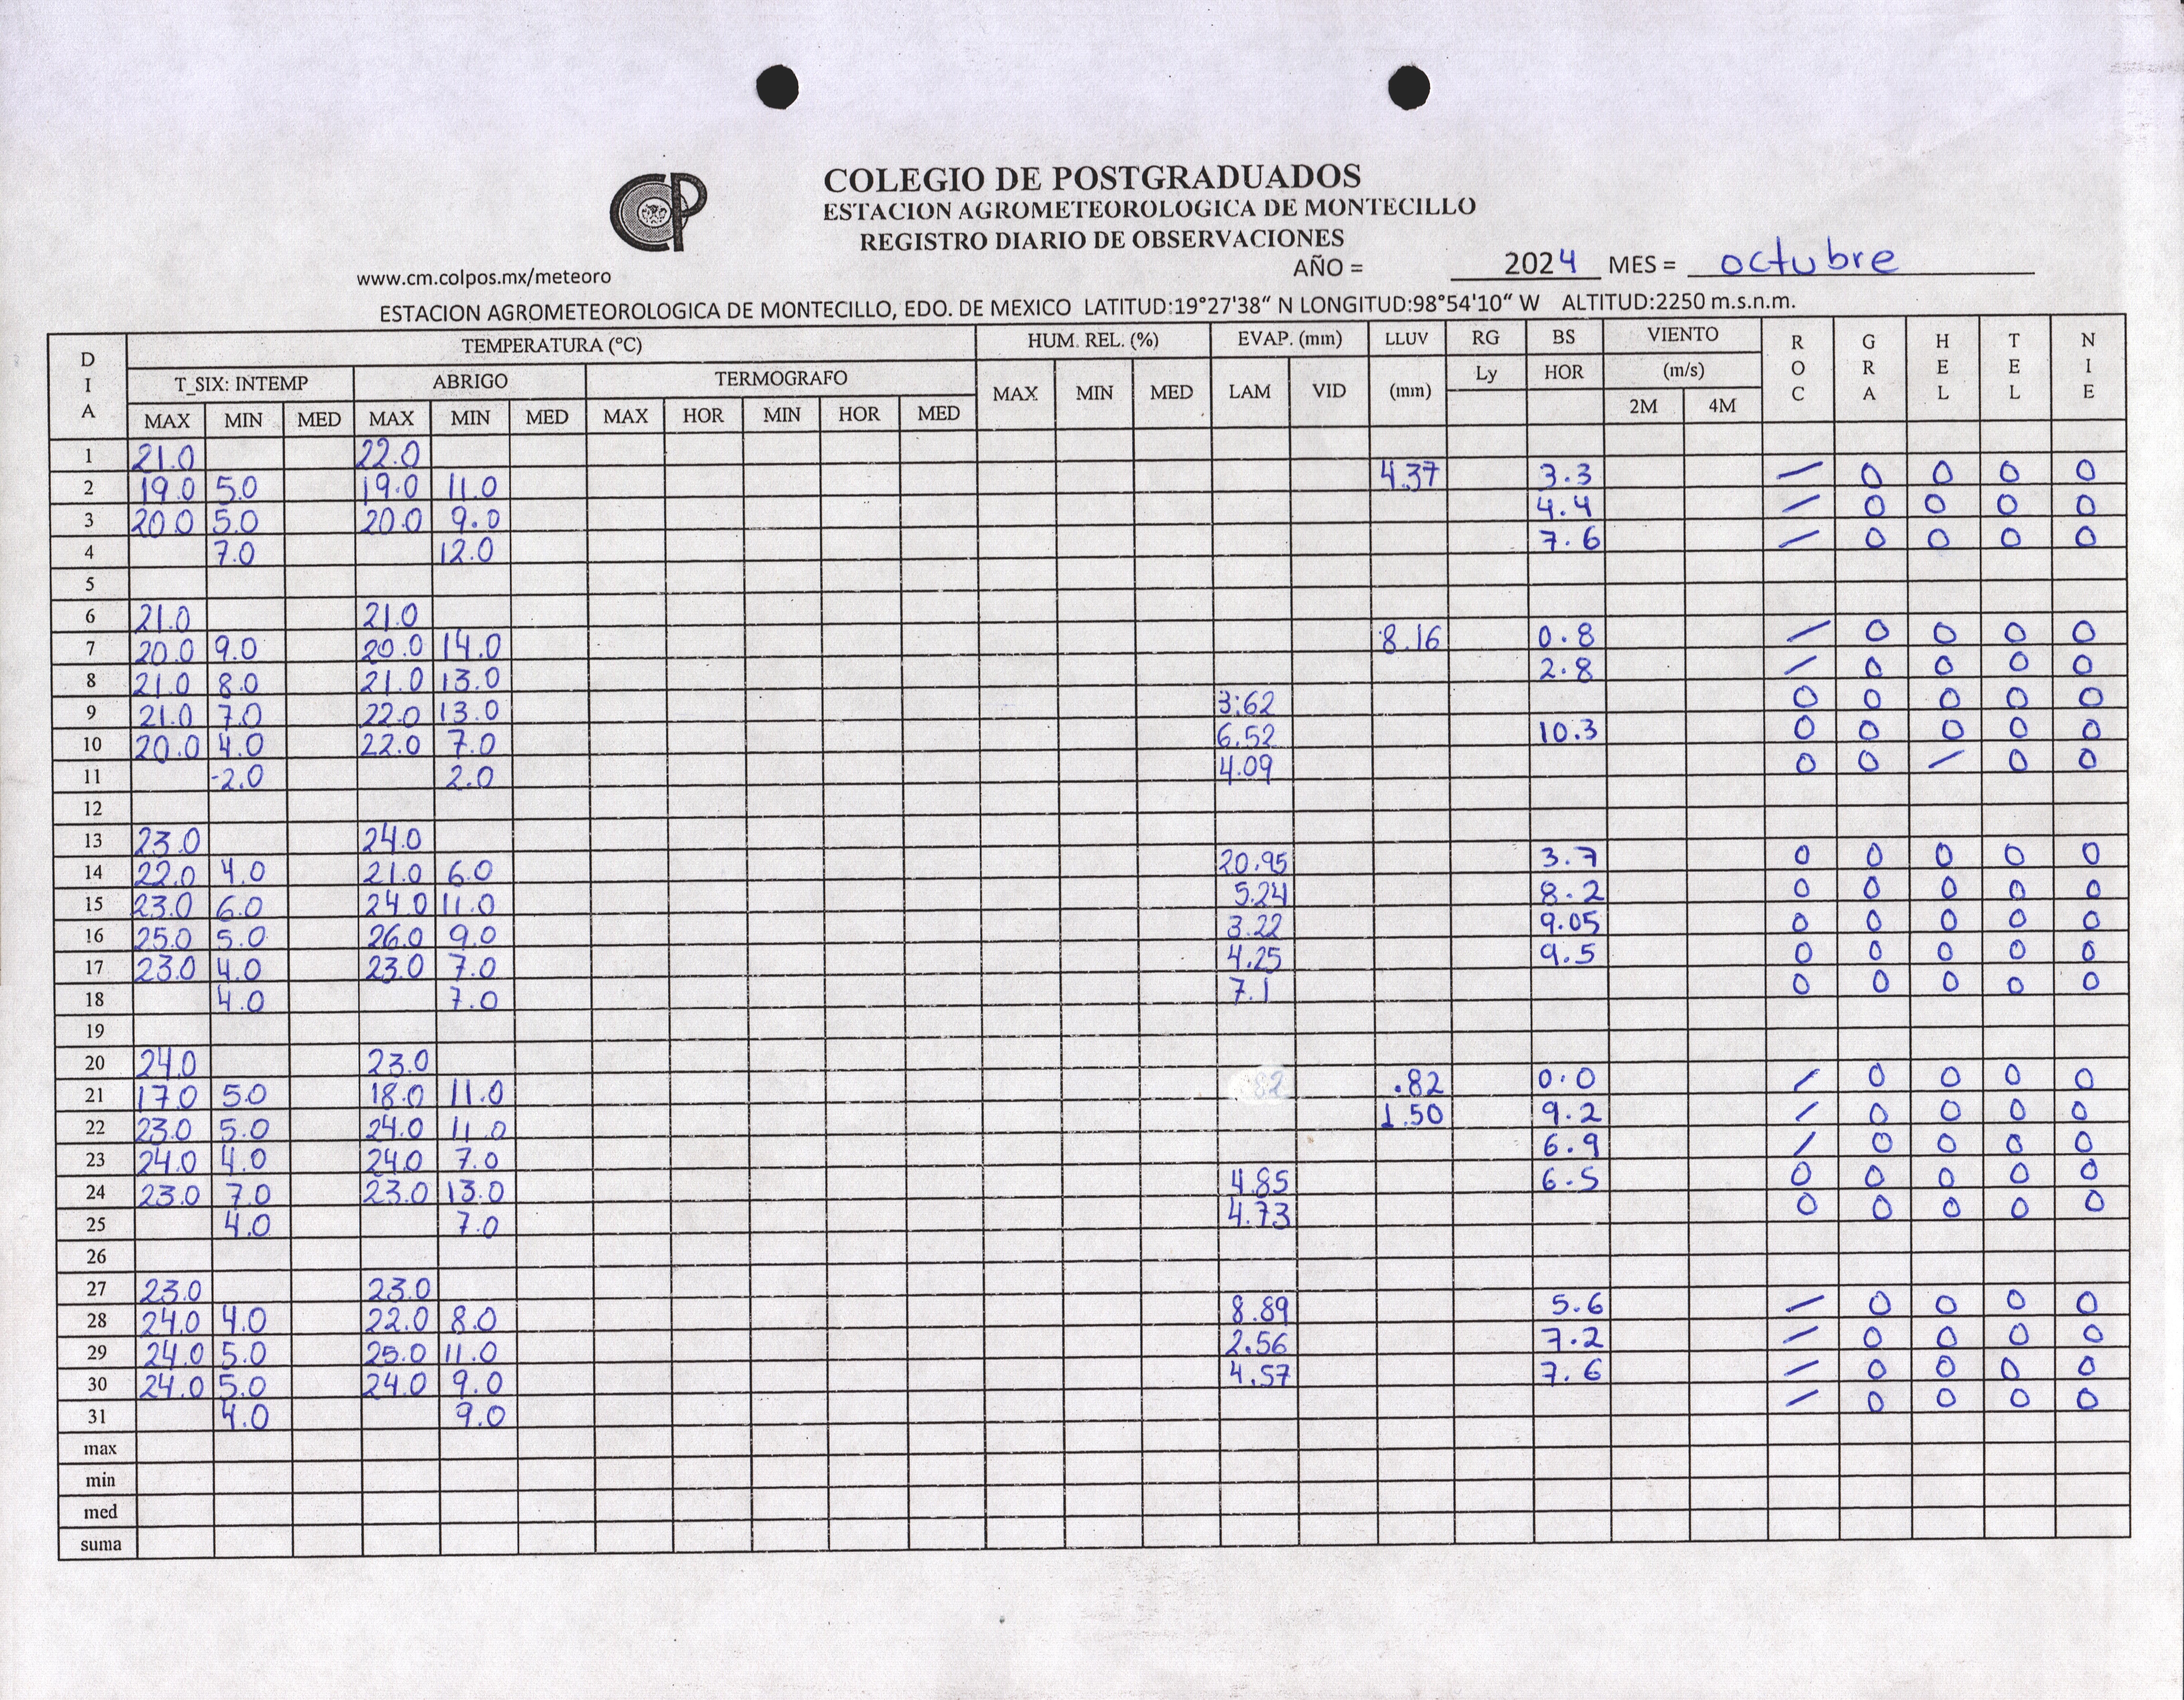 COLEGIO DE POSTGRADUADOS
ESTACION AGROMETEOROLOGICA DE MONTECILLO
REGISTRO DIARIO DE OBSERVACIONES
www.cm.colpos.mx/meteoro AÑO = 2024 MES = octubre
ESTACION AGROMETEOROLOGICA DE MONTECILLO, EDO. DE MEXICO LATITUD:19°27'38" N LONGITUD:98°54'10" W ALTITUD:2250 m.s.n.m.
DIA TEMPERATURA (°C) HUM. REL. (%) EVAP. (mm) LLUV RG BS VIENTO ROC GRA HEL TEL NIE
T_SIX: INTEMP ABRIGO TERMOGRAFO MAX MIN MED LAM VID (mm) Ly HOR (m/s)
MAX MIN MED MAX MIN MED MAX HOR MIN HOR MED 2M 4M
1 21.0 22.0
2 19.0 5.0 19.0 11.0 4.37 3.3 / 0 0 0 0
3 20.0 5.0 20.0 9.0 4.4 / 0 0 0 0
4 7.0 12.0 7.6 / 0 0 0 0
5
6 21.0 21.0
7 20.0 9.0 20.0 14.0 8.16 0.8 / 0 0 0 0
8 21.0 8.0 21.0 13.0 2.8 / 0 0 0 0
9 21.0 7.0 22.0 13.0 3.62 0 0 0 0 0
10 20.0 4.0 22.0 7.0 6.52 10.3 0 0 0 0 0
11 -2.0 2.0 4.09 0 0 / 0 0
12
13 23.0 24.0
14 22.0 4.0 21.0 6.0 20.95 3.7 0 0 0 0 0
15 23.0 6.0 24.0 11.0 5.24 8.2 0 0 0 0 0
16 25.0 5.0 26.0 9.0 3.22 9.05 0 0 0 0 0
17 23.0 4.0 23.0 7.0 4.25 9.5 0 0 0 0 0
18 4.0 7.0 7.1 0 0 0 0 0
19
20 24.0 23.0
21 17.0 5.0 18.0 11.0 .82 0.0 / 0 0 0 0
22 23.0 5.0 24.0 11.0 1.50 9.2 / 0 0 0 0
23 24.0 4.0 24.0 7.0 6.9 / 0 0 0 0
24 23.0 7.0 23.0 13.0 4.85 6.5 0 0 0 0 0
25 4.0 7.0 4.73 0 0 0 0 0
26
27 23.0 23.0
28 24.0 4.0 22.0 8.0 8.89 5.6 / 0 0 0 0
29 24.0 5.0 25.0 11.0 2.56 7.2 / 0 0 0 0
30 24.0 5.0 24.0 9.0 4.57 7.6 / 0 0 0 0
31 4.0 9.0 / 0 0 0 0
max
min
med
suma